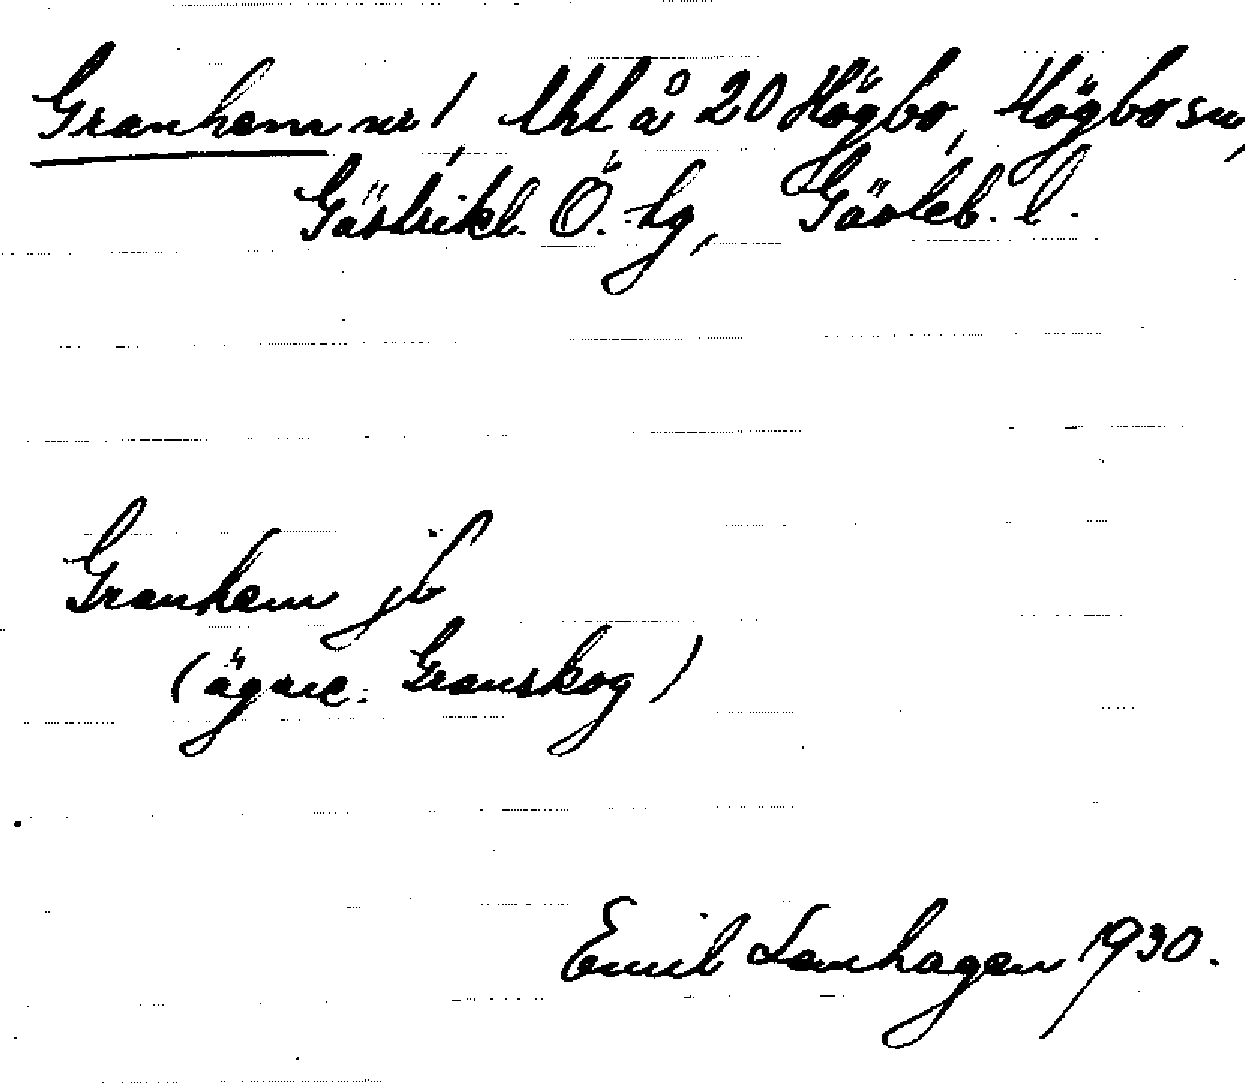 Granhem nr 1, lhl å 20 Högbo, Högbo sn,
Gästrikl. Ö. hg, Gävleb. l.
Granhem jb
(ägare: Granskog)
Emil Lanhagen 1930.